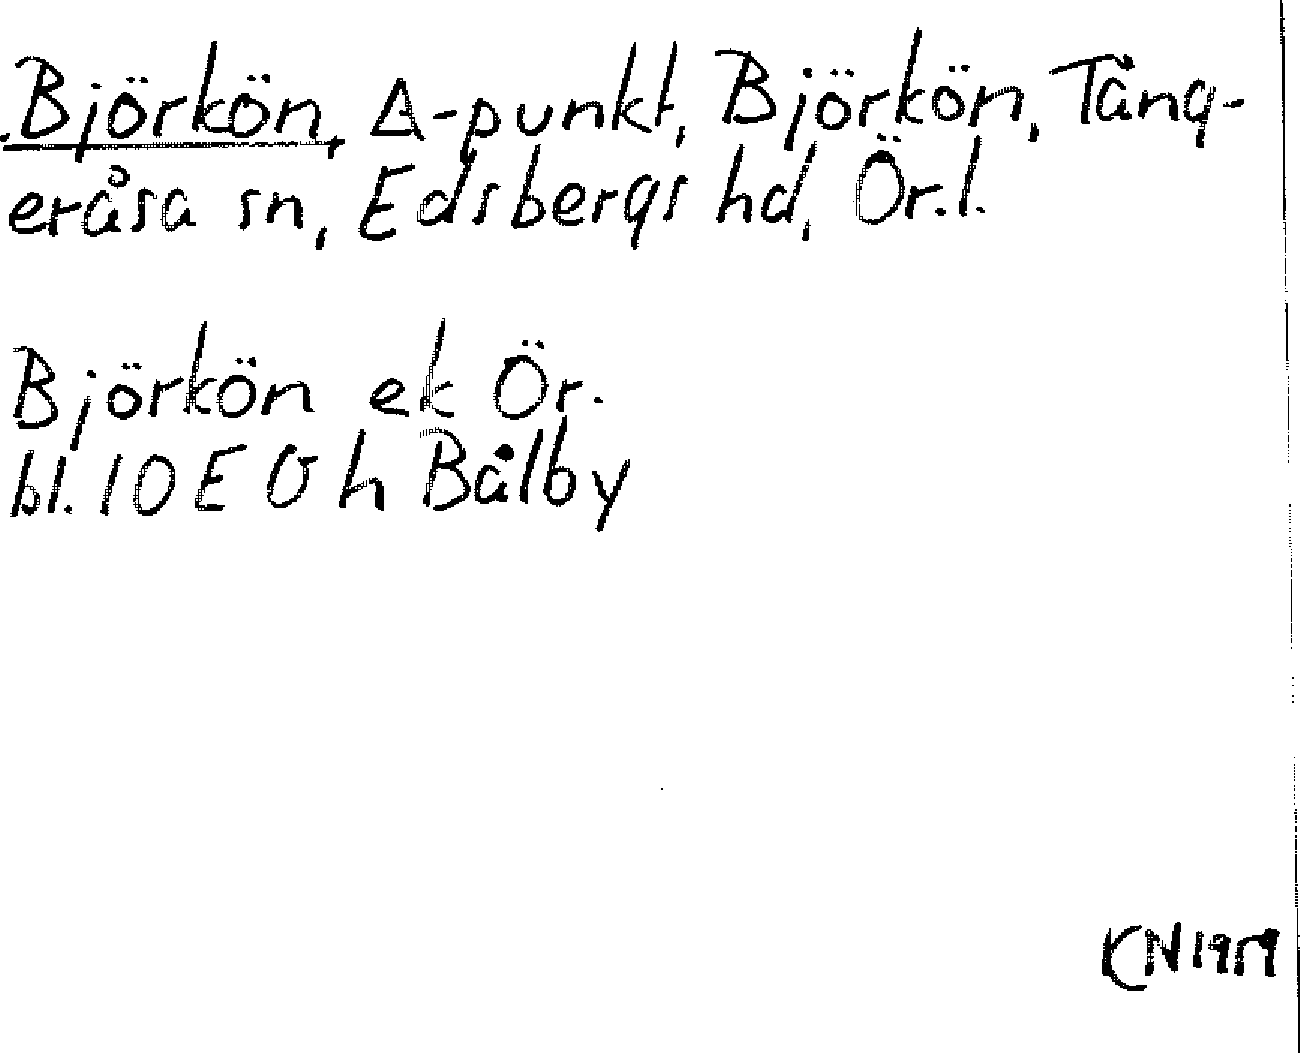 Björkön, ∆-punkt, Björkön, Tång-
eråsa sn, Edsbergs hd, Ör.l.
Björkön ek Ör.
bl. 10 E 0 h Bålby
KN 1959